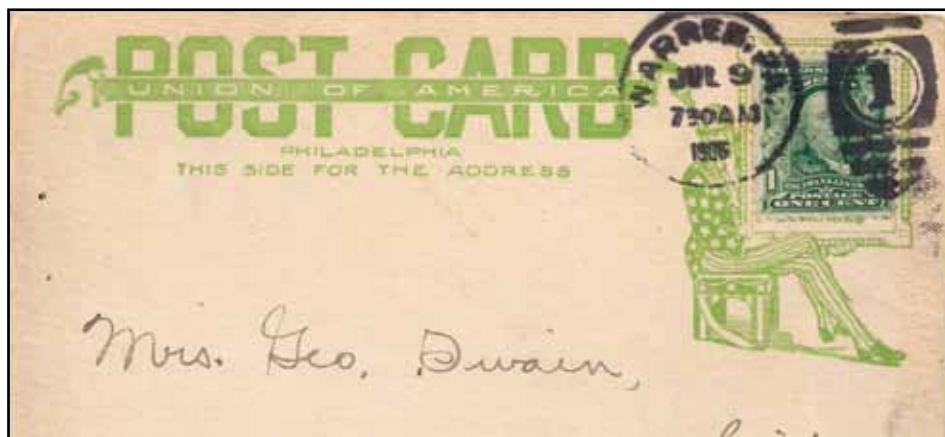 POST CARD
UNION OF AMERICA
PHILADELPHIA
THIS SIDE FOR THE ADDRESS
WARREN,
JUL 9
730 AM
1906
1
1
POSTAGE
ONE CENT
Mrs. Geo. Swain,